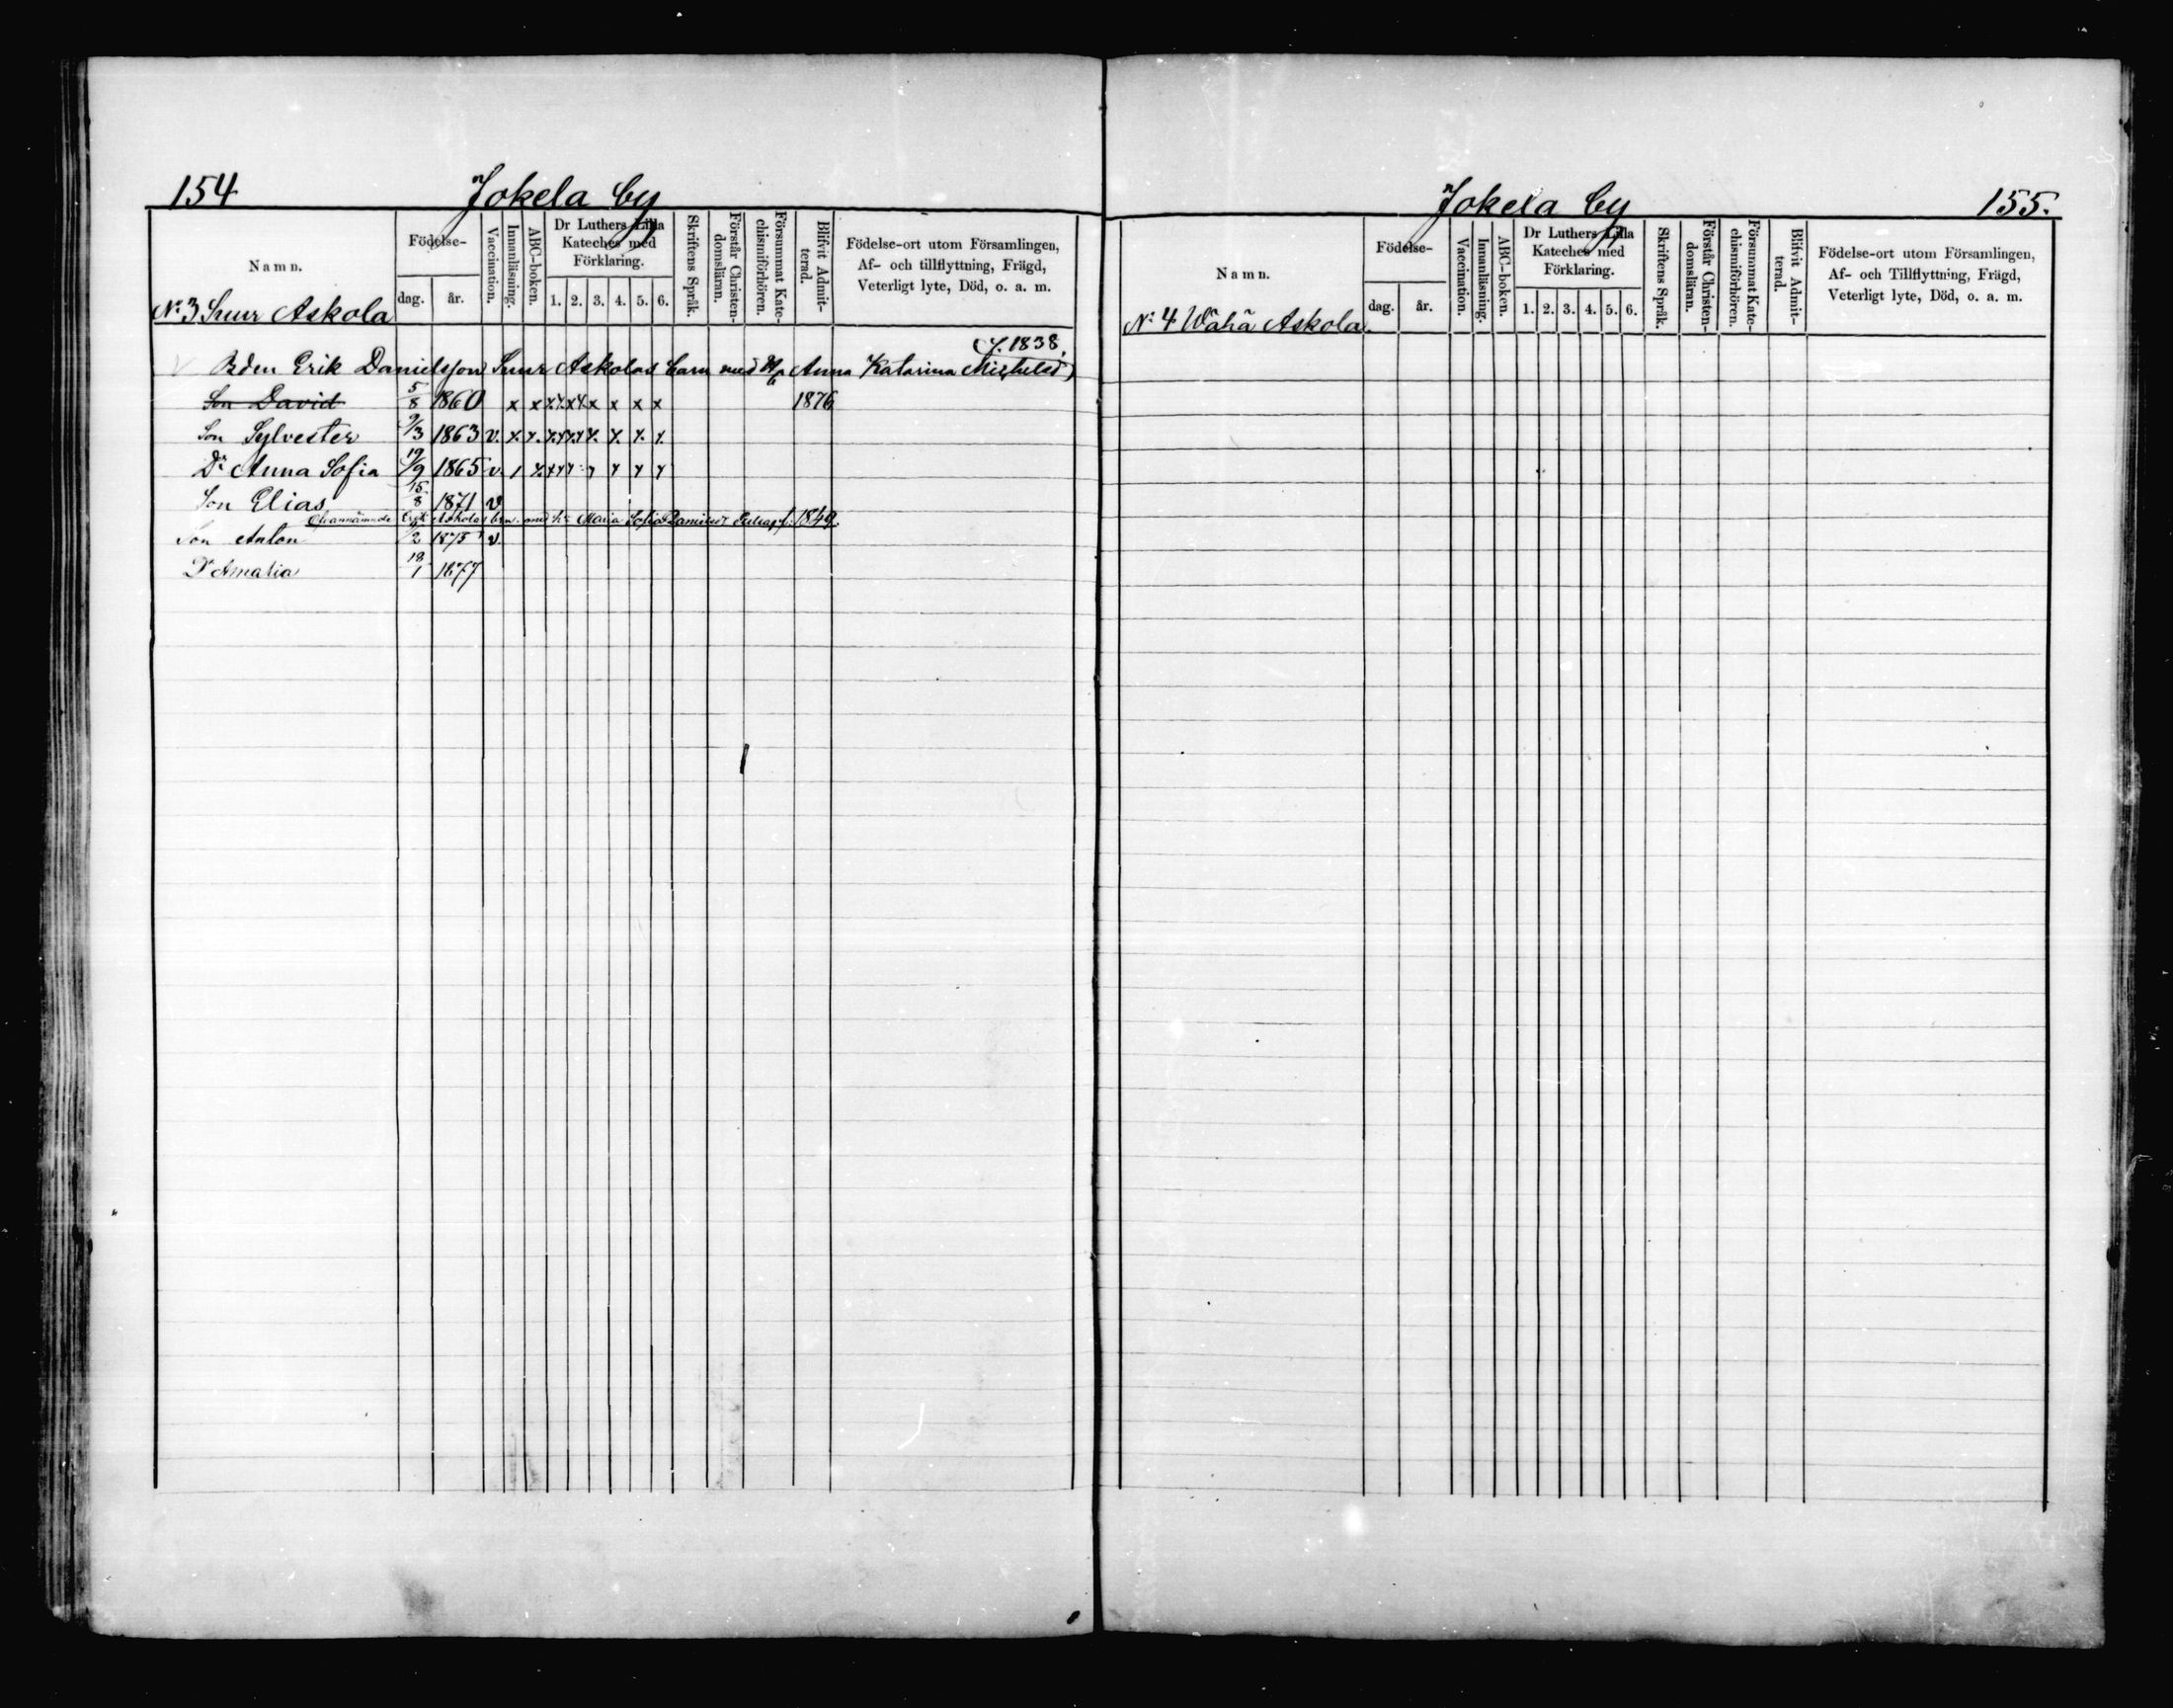 154 Jokela by
Namn. Födelse- dag. år. Vaccination. Innanläsning. ABC-boken. Dr Luthers Lilla Kateches med Förklaring. 1. 2. 3. 4. 5. 6. Skriftens Språk. Förstår Christendomsläran. Försummat Katechismiförhören. Blifvit Admitterad. Födelse-ort utom Församlingen, Af- och tillflyttning, Frägd, Veterligt lyte, Död, o. a. m.
No 3 Suur Askola
f. 1838.
Bden Erik Danielsson Suur Askolas barn med Anna Katarina
Son David 5/8 1860 x x x x x x x x 1876
Son Sylvester 9/3 1863 v. x x x x x x x x
Dr Anna Sofia 19/9 1865 v. x x x x x x
Son Elias 15/8 1871 v
Ofvannämnde Erik Askolas barn med h. Maria Sofia f. 1849.
Son Anton /2 1875 v.
Dr Amalia 18/1 1877
Jokela by 155.
Namn. Födelse- dag. år. Vaccination. Innanläsning. ABC-boken. Dr Luthers Lilla Kateches med Förklaring. 1. 2. 3. 4. 5. 6. Skriftens Språk. Förstår Christendomsläran. Försummat Katechismiförhören. Blifvit Admitterad. Födelse-ort utom Församlingen, Af- och Tillflyttning, Frägd, Veterligt lyte, Död, o. a. m.
No 4 Wähä Askola.